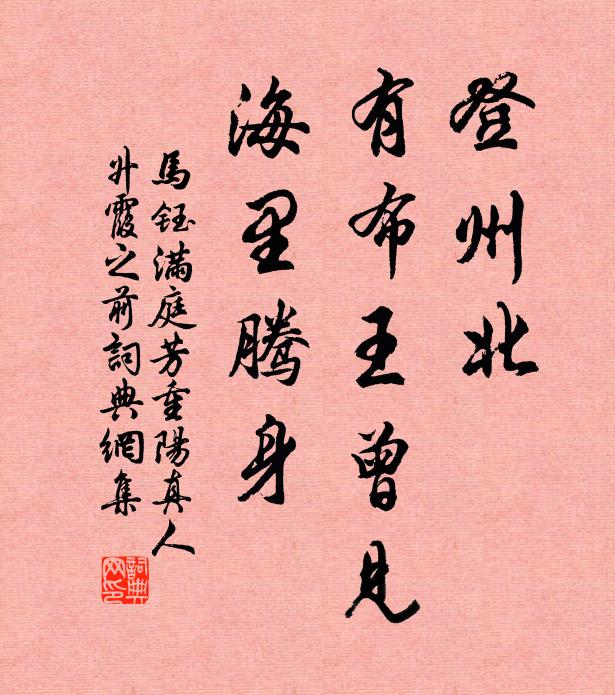 登州北
有布王曾見
海里騰身
馬鈺滿庭芳重陽真人
升霞之前詞典網集
詞典网印